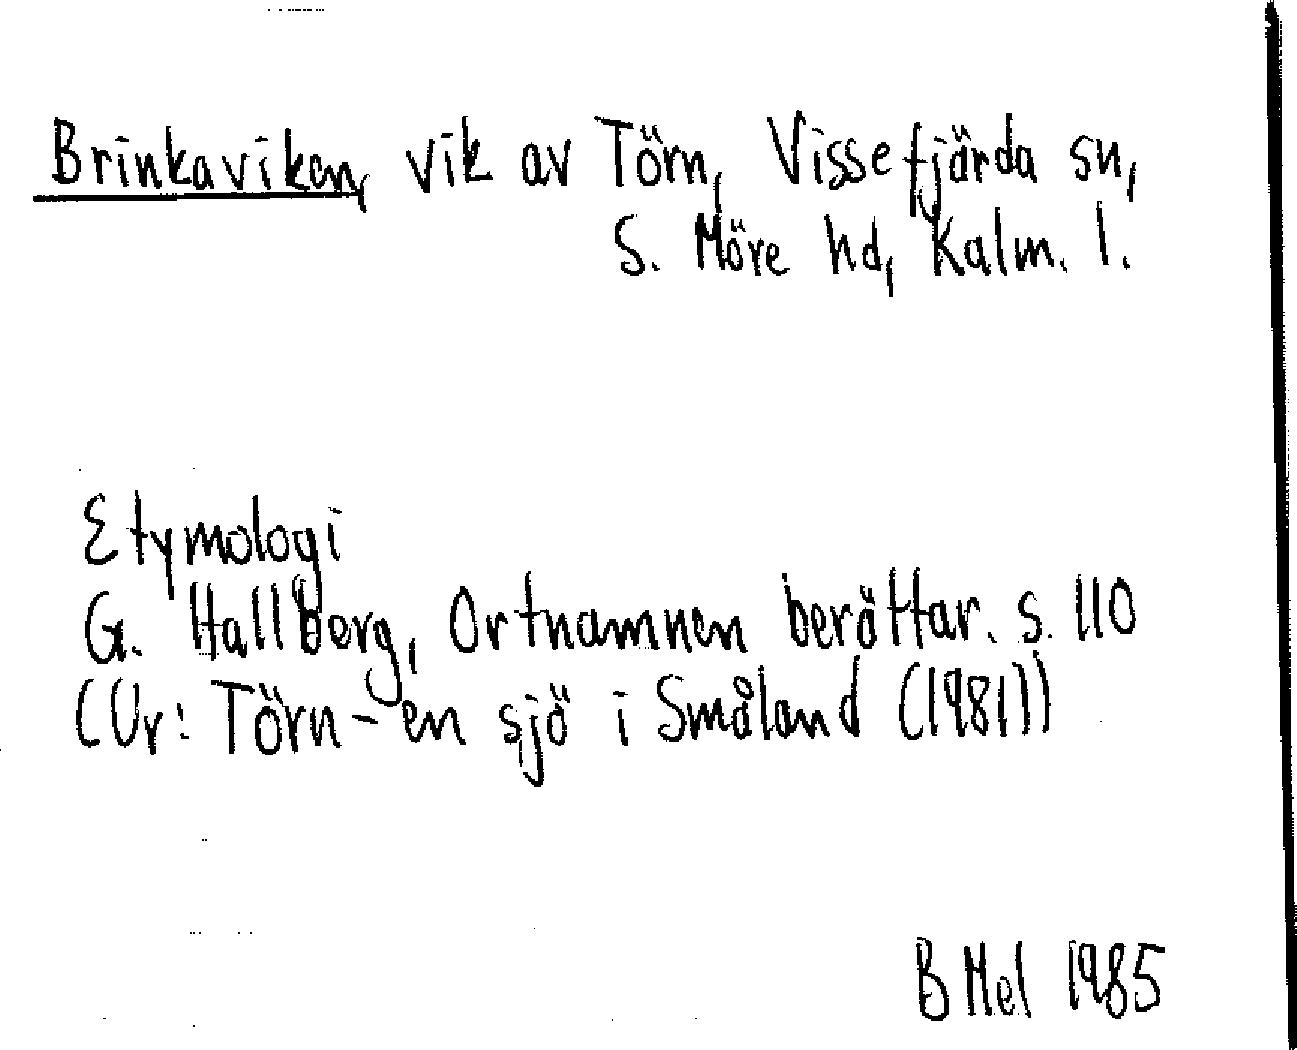 Brinkaviken, vik av Törn, Vissefjärda sn,
S. Möre hd, Kalm. l.
Etymologi
G. Hallberg, Ortnamnen berättar. s. 110
(Ur: Törn - en sjö i Småland (1981))
B Mel 1985